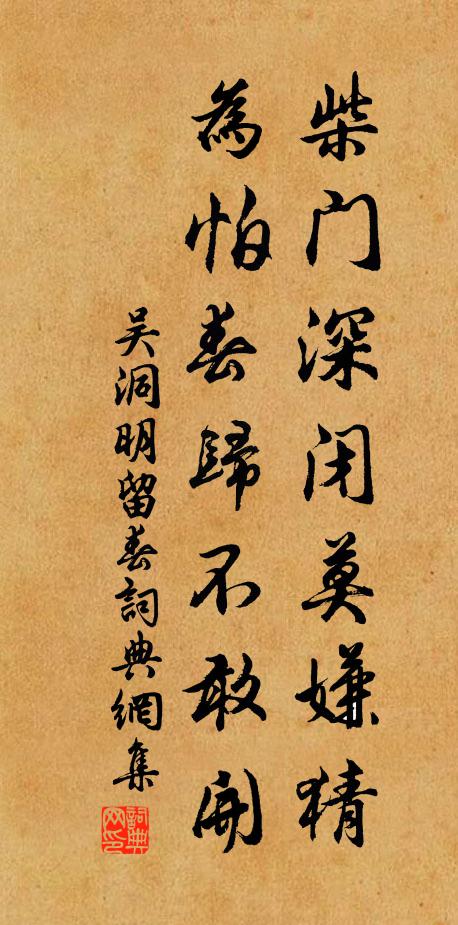 柴门深闭莫嫌猜
為怕春歸不敢開
吴洞明留春詞典網集
詞典
网印